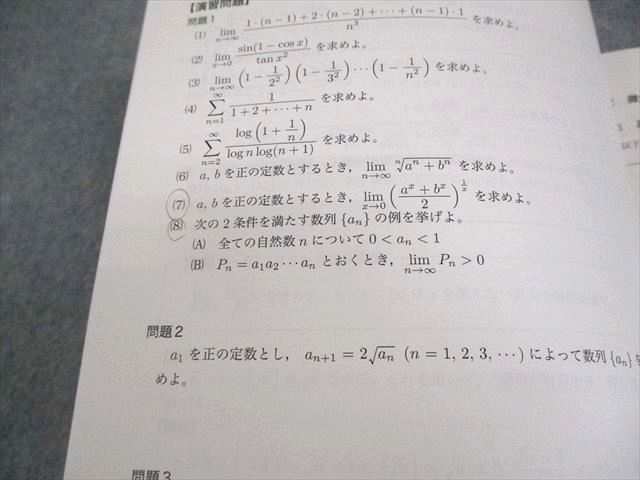 【演習問題】
問題1
(1) lim_{n→∞} \frac{1·(n−1)+2·(n−2)+···+(n−1)·1}{n^3} を求めよ。
(2) lim_{x→0} \frac{sin(1−cos x)}{tan x^2} を求めよ。
(3) lim_{n→∞} (1−\frac{1}{2^2})(1−\frac{1}{3^2})···(1−\frac{1}{n^2}) を求めよ。
(4) \sum_{n=1}^{∞} \frac{1}{1+2+···+n} を求めよ。
(5) \sum_{n=2}^{∞} \frac{log(1+\frac{1}{n})}{log n log(n+1)} を求めよ。
(6) a, b を正の定数とするとき， lim_{n→∞} \sqrt[n]{a^n+b^n} を求めよ。
(7) a, b を正の定数とするとき， lim_{x→0} (\frac{a^x+b^x}{2})^{\frac{1}{x}} を求めよ。
(8) 次の2条件を満たす数列 {a_n} の例を挙げよ。
(A) 全ての自然数 n について 0 < a_n < 1
(B) P_n = a_1a_2···a_n とおくとき， lim_{n→∞} P_n > 0
問題2
a_1 を正の定数とし， a_{n+1} = 2\sqrt{a_n} (n = 1, 2, 3, ···) によって数列 {a_n} を
めよ。
問題3
1
以下